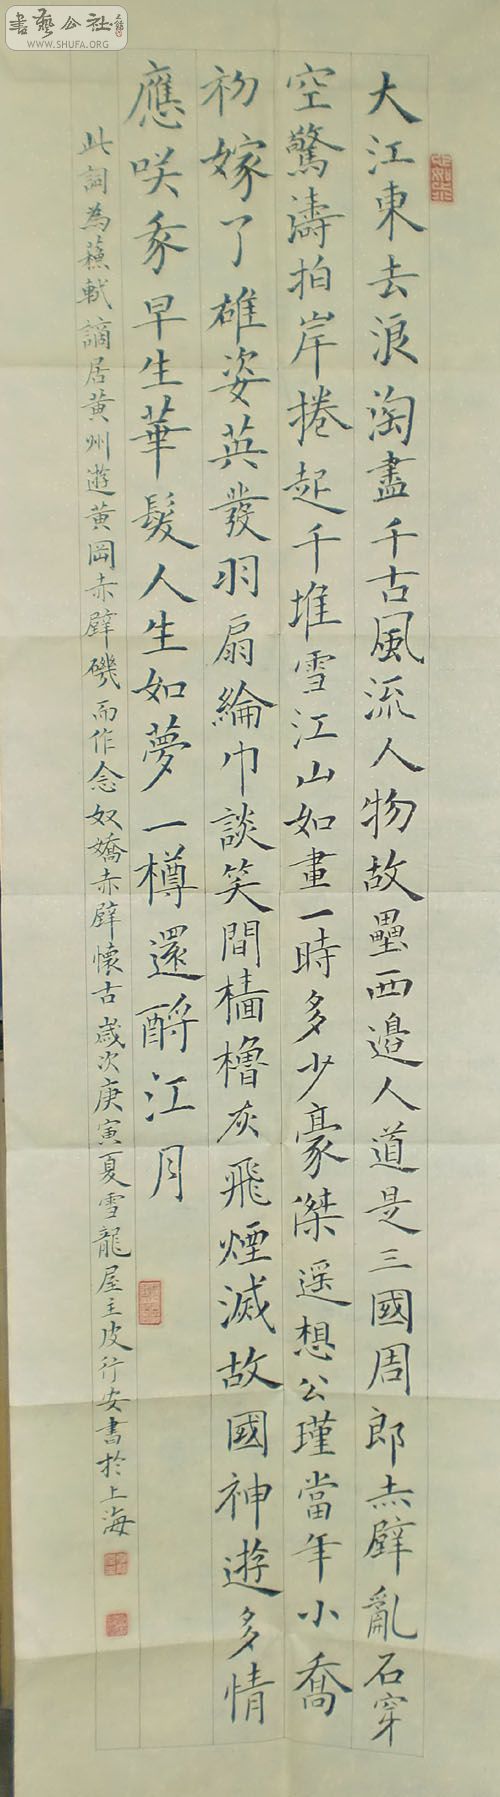 書藝公社
WWW.SHUFA.ORG
大江東去浪淘盡千古風流人物故壘西邊人道是三國周郎赤壁亂石穿
空驚濤拍岸捲起千堆雪江山如畫一時多少豪傑遥想公瑾當年小喬
初嫁了雄姿英發羽扇綸巾談笑間檣櫓灰飛煙滅故國神遊多情
應咲我早生華髮人生如夢一樽還酹江月
此詞為蘇軾謫居黄州遊黄岡赤壁磯而作念奴嬌赤壁懷古 歲次庚寅夏雪龍屋主皮行安書於上海